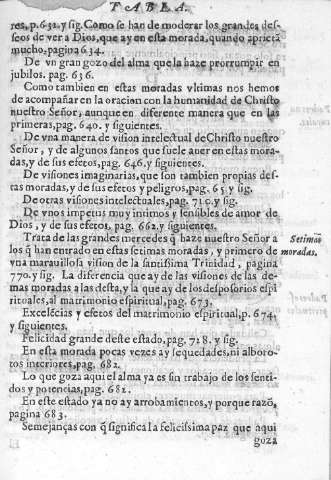 TABLA.
res, p.632. y sig. Como se han de moderar los grandes des-
seos de ver a Dios, que ay en esta morada, quando aprieta
mucho, pagina 634.
De vn gran gozo del alma que la haze prorrumpir en
jubilos. pag. 636.
Como tambien en estas moradas vltimas nos hemos
de acompañar en la oracion con la humanidad de Christo
nuestro Señor, aunque en diferente manera que en las
primeras, pag. 640. y siguientes.
De vna manera de vision intelectual de Christo nuestro
Señor, y de algunos santos que suele auer en estas mora-
das, y de sus efetos, pag. 646. y siguientes.
De visiones imaginarias, que son tambien propias des-
tas moradas, y de sus efetos y peligros, pag. 65 y sig.
De otras visiones intelectuales, pag. 710. y sig.
De vnos impetus muy intimos y sensibles de amor de
Dios, y de sus efetos, pag. 662. y siguientes.
Trata de las grandes mercedes q̃ haze nuestro Señor a
los q̃ han entrado en estas setimas moradas, y primero de
vna marauillosa vision de la santissima Trinidad, pagina
770. y sig. La diferencia que ay de las visiones de las de-
mas moradas a las desta, y la que ay de los desposorios espi
rituales, al matrimonio espiritual, pag. 673.
Excelẽcias y efetos del matrimonio espiritual, p. 674.
y siguientes.
Felicidad grande deste estado, pag. 728. y sig.
En esta morada pocas vezes ay sequedades, ni alboro-
tos interiores, pag. 682.
Lo que goza aqui el alma ya es sin trabajo de los senti-
dos y potencias, pag. 682.
En este estado ya no ay arrobamientos, y porque razõ,
pagina 683.
Semejanças con q̃ significa la felicissima paz que aqui
goza
Setimas
moradas.